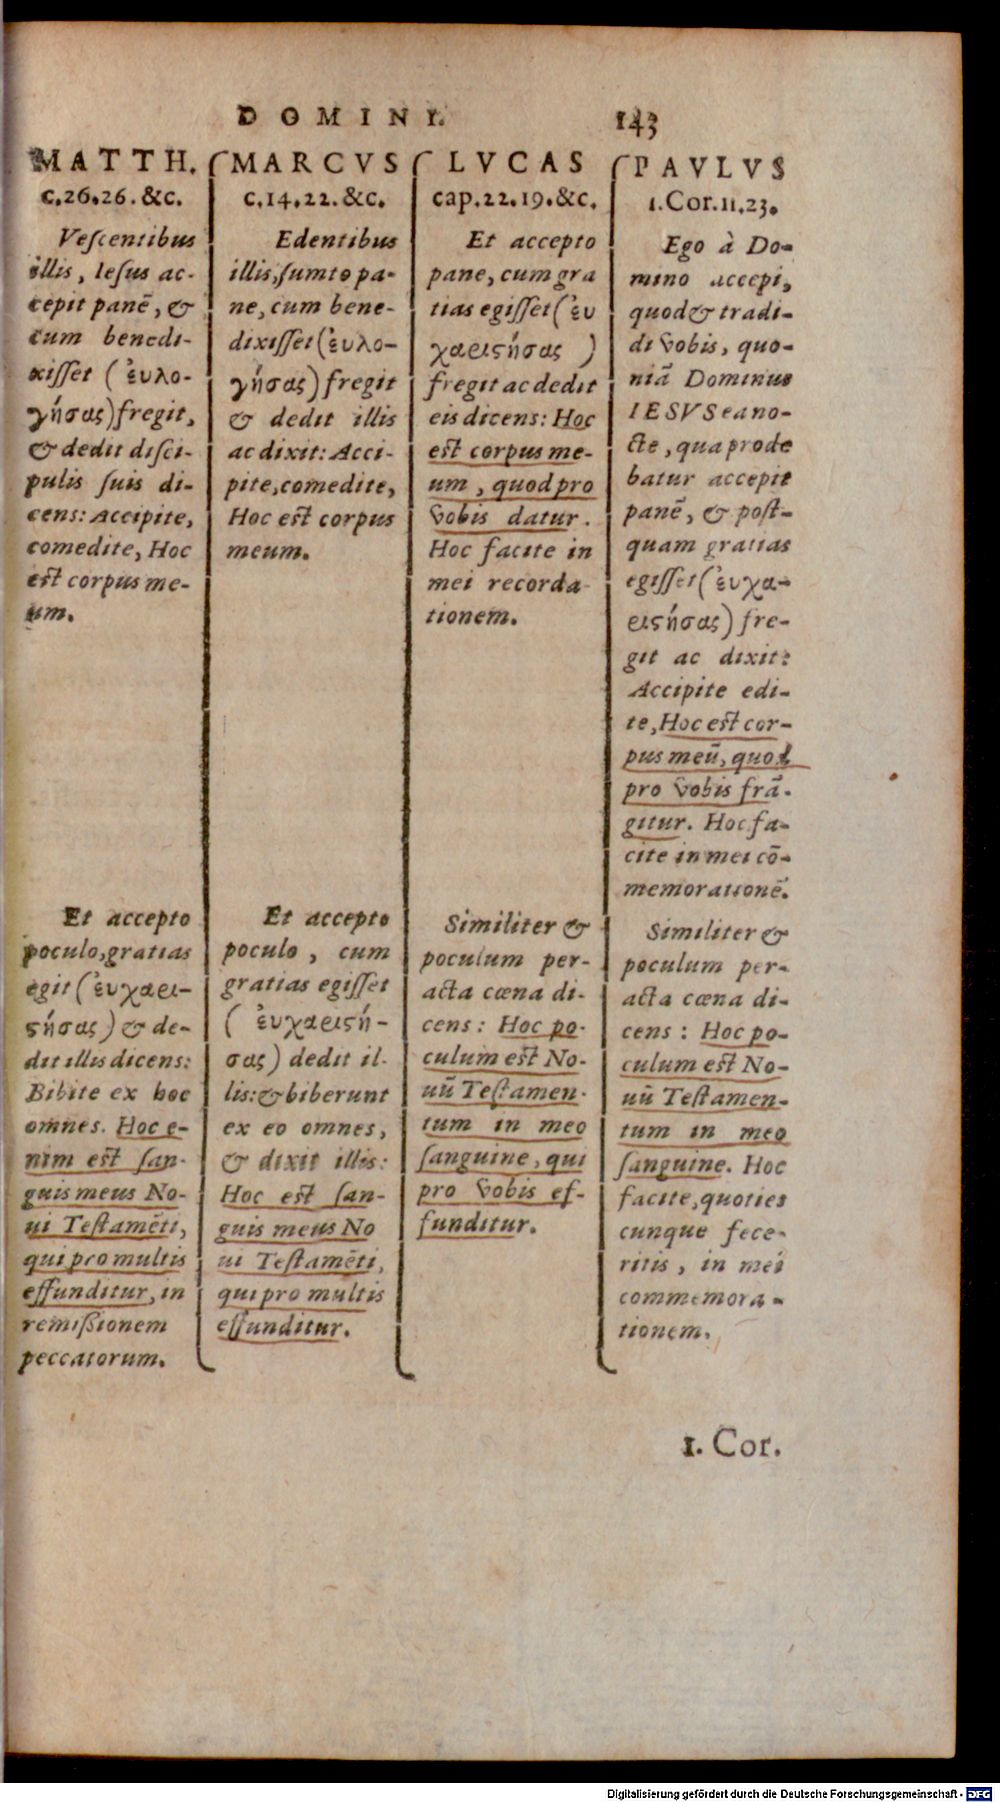 DOMINI.
143
MATTH.
c.26.26.&c.
Veſcentibus
illis, Ieſus ac-
cepit panē, &
cum benedi-
xiſſet (ἐυλο-
γήσας) fregit,
& dedit diſci-
pulis ſuis di-
cens: Accipite,
comedite, Hoc
est corpus me-
um.
Et accepto
poculo, gratias
egit (ἐυχαρι-
ςήσας) & de-
dit illis dicens:
Bibite ex hoc
omnes. Hoc e-
nim est ſan-
guis meus No-
ui Teſtamēti,
qui pro multis
effunditur, in
remiſsionem
peccatorum.
MARCVS
c.14.22.&c.
Edentibus
illis, ſumto pa-
ne, cum bene-
dixiſſet (ἐυλο-
γήσας) fregit
& dedit illis
ac dixit: Acci-
pite, comedite,
Hoc est corpus
meum.
Et accepto
poculo, cum
gratias egiſſet
(ἐυχαριςή-
σας) dedit il-
lis: & biberunt
ex eo omnes,
& dixit illis:
Hoc est ſan-
guis meus No
ui Teſtamēti,
qui pro multis
effunditur.
LVCAS
cap.22.19.&c.
Et accepto
pane, cum gra
tias egiſſet (ἐυ
χαριςήσας)
fregit ac dedit
eis dicens: Hoc
est corpus me-
um, quod pro
vobis datur.
Hoc facite in
mei recorda-
tionem.
Similiter &
poculum per-
acta cœna di-
cens: Hoc po-
culum est No-
uū Teſtamen-
tum in meo
ſanguine, qui
pro vobis ef-
funditur.
PAVLVS
1.Cor.11.23.
Ego à Do-
mino accepi,
quod & tradi-
di vobis, quo-
niā Dominus
IESVS ea no-
cte, qua prode
batur accepit
panē, & poſt-
quam gratias
egiſſet (ἐυχα-
ριςήσας) fre-
git ac dixit:
Accipite edi-
te, Hoc est cor-
pus meū, quod
pro vobis frā-
gitur. Hoc fa-
cite in mei cō-
memorationē.
Similiter &
poculum per-
acta cœna di-
cens: Hoc po-
culum est No-
uū Teſtamen-
tum in meo
ſanguine. Hoc
facite, quoties
cunque fece-
ritis, in mei
commemora-
tionem.
1. Cor.
Digitalisierung gefördert durch die Deutsche Forschungsgemeinschaft - DFG